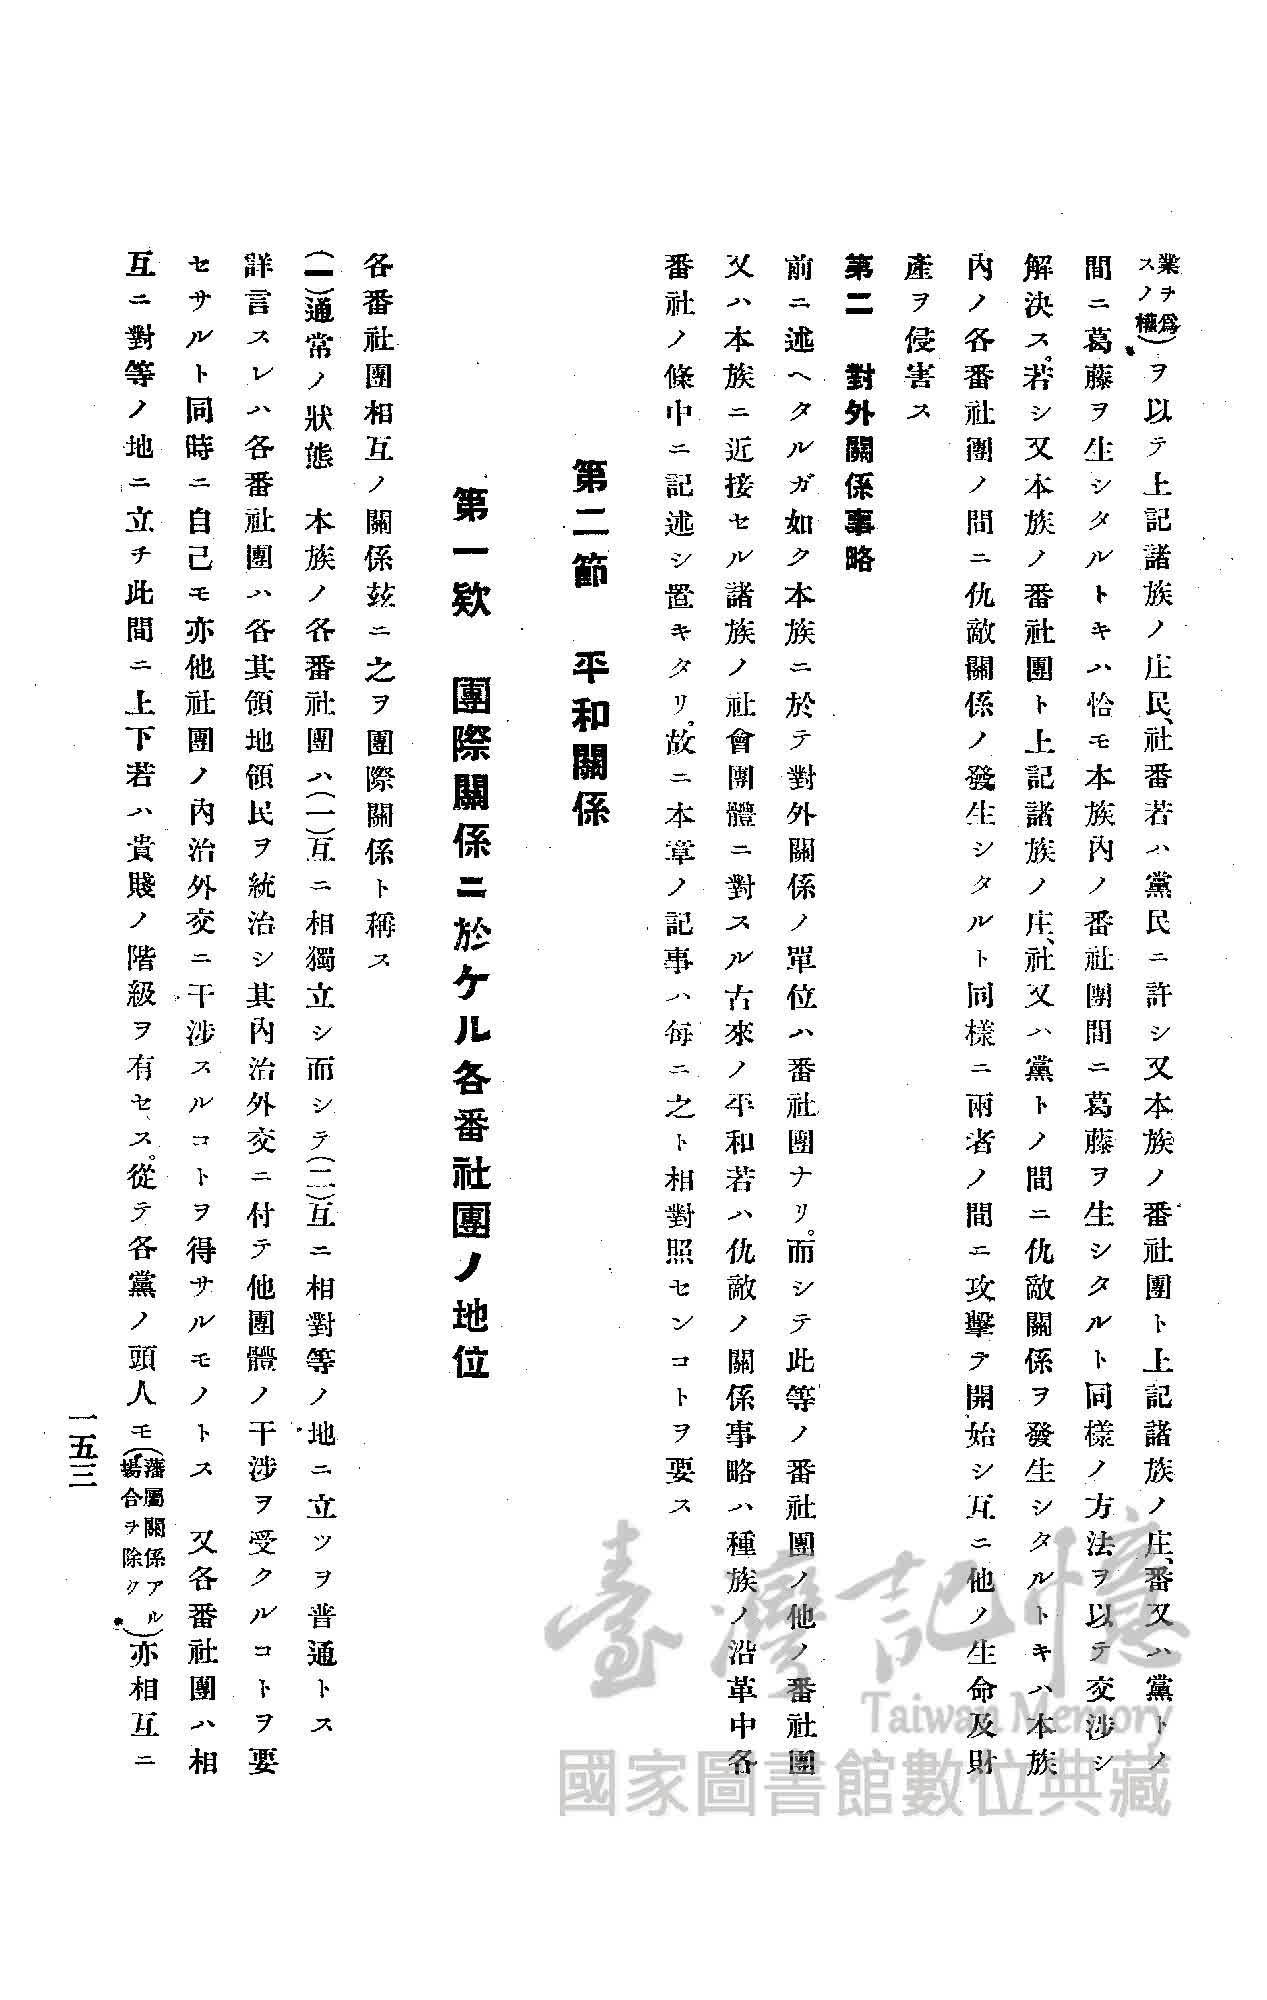 業ヲ爲スノ權)ヲ以テ上記諸族ノ庄民、社番若ハ黨民ニ許シ又本族ノ番社團ト上記諸族ノ庄、番又ハ黨トノ
間ニ葛藤ヲ生シタルトキハ恰モ本族內ノ番社團間ニ葛藤ヲ生シタルト同樣ノ方法ヲ以テ交涉シ
解決ス。若シ又本族ノ番社團ト上記諸族ノ庄、社又ハ黨トノ間ニ仇敵關係ヲ發生シタルトキハ本族
內ノ各番社團ノ間ニ仇敵關係ノ發生シタルト同樣ニ兩者ノ間ニ攻擊ヲ開始シ互ニ他ノ生命及財
產ヲ侵害ス
第二 對外關係事略
前ニ述ヘタルガ如ク本族ニ於テ對外關係ノ單位ハ番社團ナリ。而シテ此等ノ番社團ノ他ノ番社團
又ハ本族ニ近接セル諸族ノ社會團體ニ對スル古來ノ平和若ハ仇敵ノ關係事略ハ種族ノ沿革中各
番社ノ條中ニ記述シ置キタリ。故ニ本章ノ記事ハ每ニ之ト相對照センコトヲ要ス
第二節 平和關係
第一欵 團際關係ニ於ケル各番社團ノ地位
各番社團相互ノ關係玆ニ之ヲ團際關係ト稱ス
(一)通常ノ狀態 本族ノ各番社團ハ(一)互ニ相獨立シ而シテ(二)互ニ相對等ノ地ニ立ツヲ普通トス
詳言スレハ各番社團ハ各其領地領民ヲ統治シ其內治外交ニ付テ他團體ノ干涉ヲ受クルコトヲ要
セサルト同時ニ自己モ亦他社團ノ內治外交ニ干涉スルコトヲ得サルモノトス 又各番社團ハ相
互ニ對等ノ地ニ立チ此間ニ上下若ハ貴賤ノ階級ヲ有セス。從テ各黨ノ頭人モ(藩屬關係アル場合ヲ除ク)亦相互ニ
一五三
臺灣記憶
Taiwan Memory
國家圖書館數位典藏